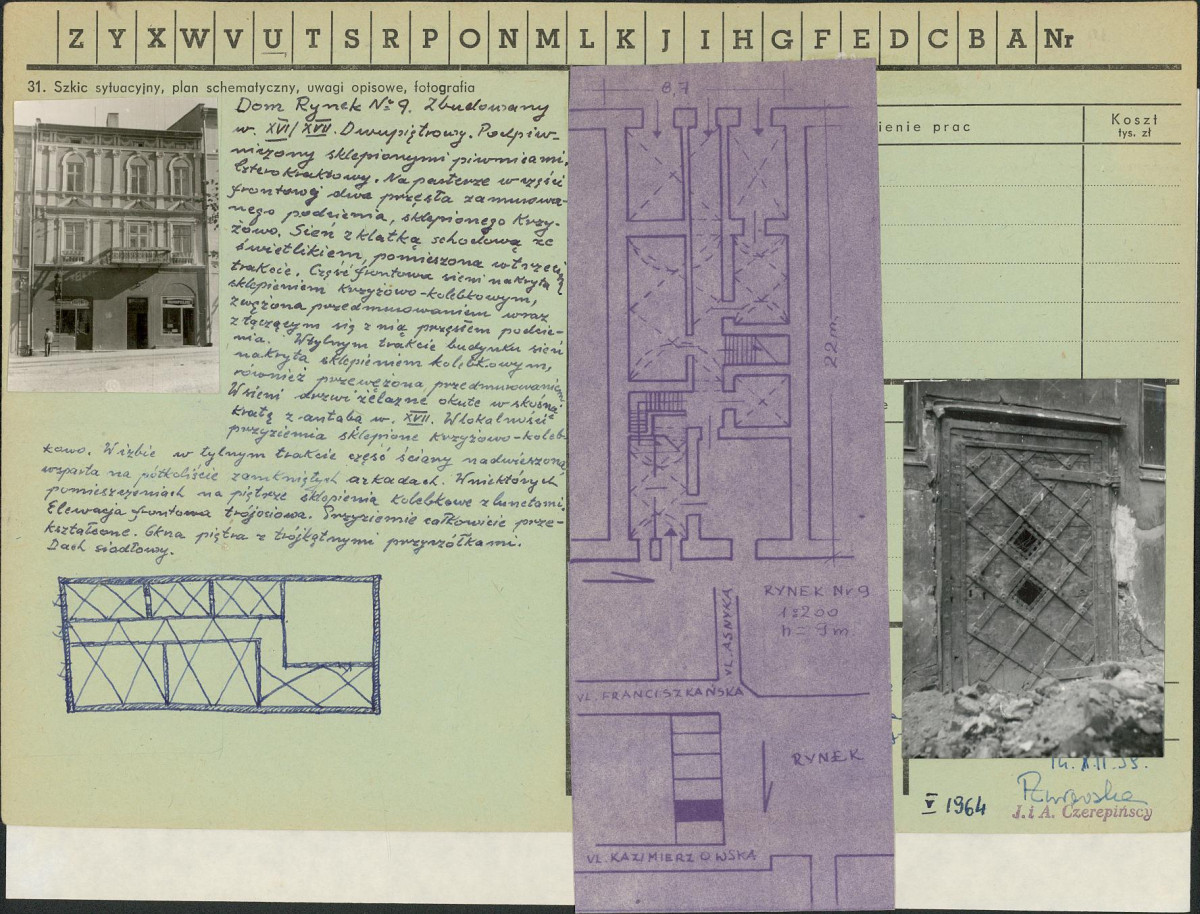 Z Y X W V U T S R P O N M L K J I H G F E D C B A Nr
31. Szkic sytuacyjny, plan schematyczny, uwagi opisowe, fotografia
Dom Rynek Nr 9. Zbudowany
w. XVI/XVII. Dwupiętrowy. Podpiw-
niczony sklepionymi piwnicami.
Czterotraktowy. Na parterze w części
frontowej dwa przęsła zamurowa-
nego podcienia, sklepionego krzy-
żowo. Sień z klatką schodową ze
świetlikiem, pomieszczona w trzecim
trakcie. Część frontowa sieni nakryta
sklepieniem krzyżowo-kolebkowym,
zwężona przedmurowaniem wraz
z łączącym się z nią przęsłem podcie-
nia. W tylnym trakcie budynku sień
nakryta sklepieniem kolebkowym,
również przewężona przedmurowaniem
W sieni drzwi żelazne okute w skośną
kratę z antabą w. XVII. W lokalności
przyziemia sklepione krzyżowo-koleb-
kowo. W izbie w tylnym trakcie część ściany nadwieszona
wsparta na półkoliście zamkniętych arkadach. W niektórych
pomieszczeniach na piętrze sklepienia kolebkowe z lunetami.
Elewacja frontowa trójosiowa. Przyziemie całkowicie prze-
kształcone. Okna piętra z trójkątnymi przyczółkami.
Dach siodłowy.
8,7
22 m.
RYNEK Nr 9
1:200
h = 9 m.
UL. ASNYKA
UL. FRANCISZKAŃSKA
RYNEK
UL. KAZIMIERZOWSKA
ienie prac
Koszt
tys. zł
e
V 1964
J. i A. Czerepińscy